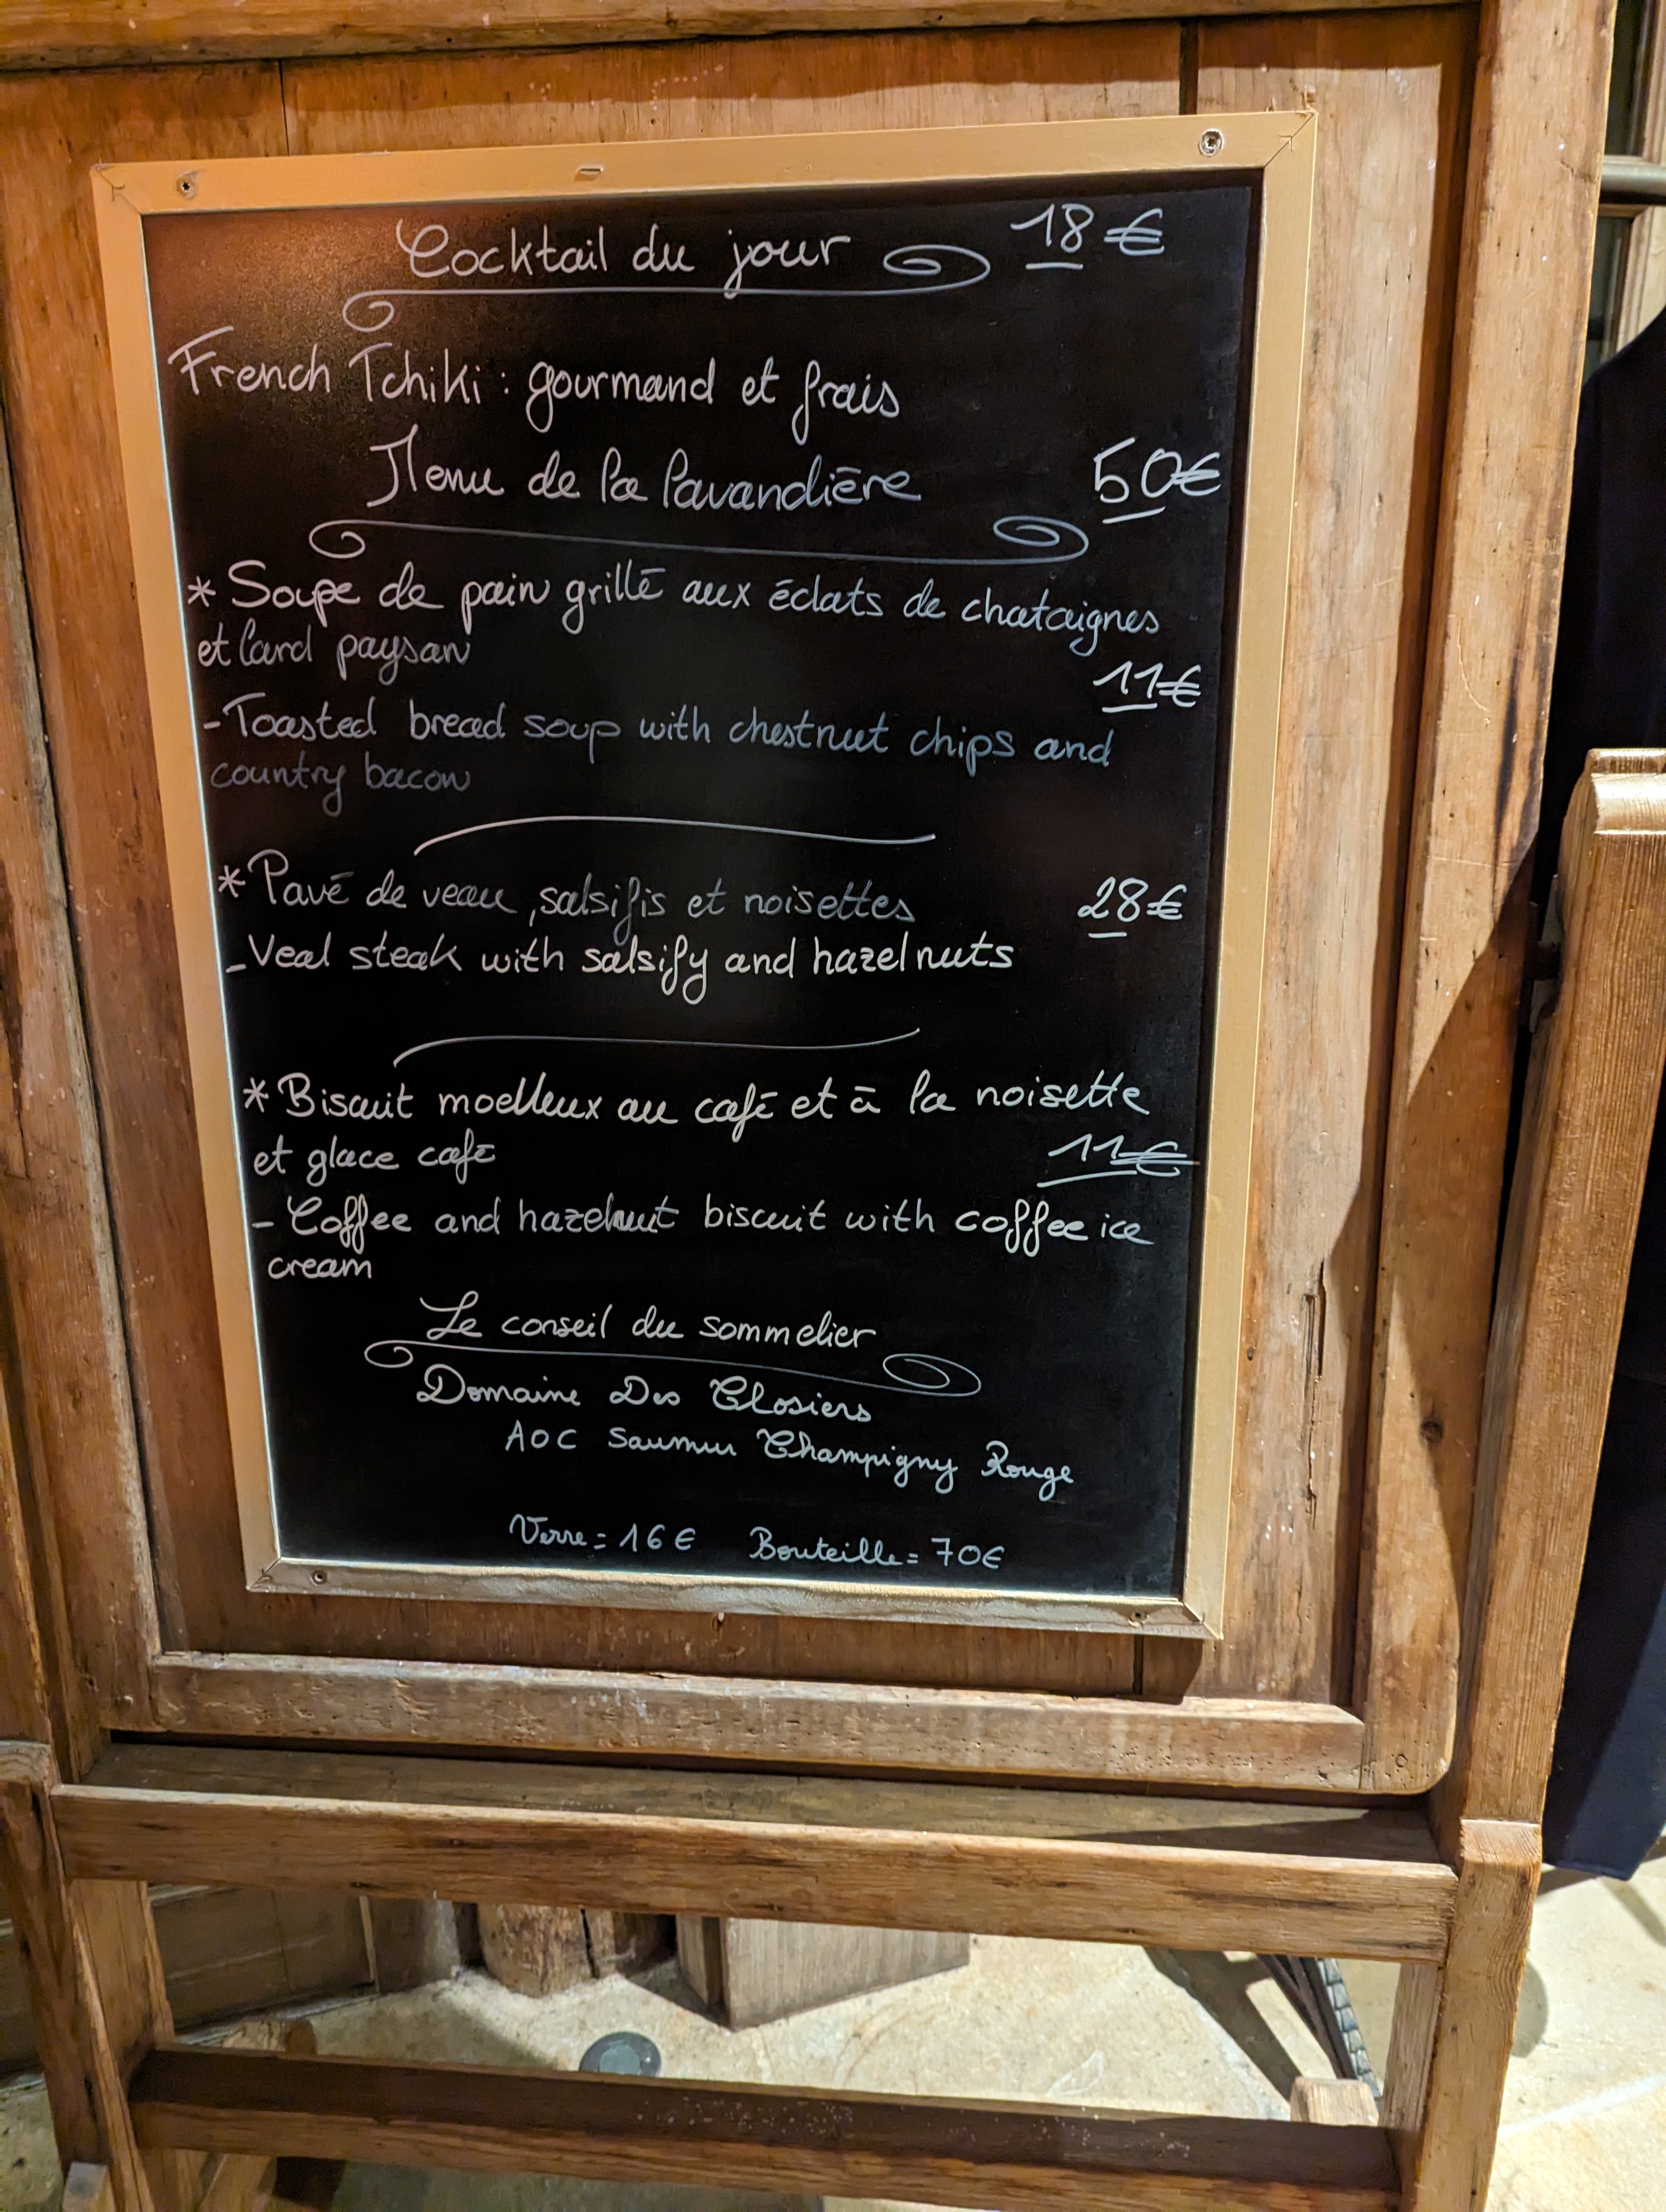 Cocktail du jour 18€
French Tchiki : gourmand et frais
Menu de la lavandière 50€
* Soupe de pain grillé aux éclats de chataignes
et lard paysan
11€
- Toasted bread soup with chestnut chips and
country bacon
* Pavé de veau, salsifis et noisettes 28€
- Veal steak with salsify and hazelnuts
* Biscuit moelleux au café et à la noisette
et glace café 11€
- Coffee and hazelnut biscuit with coffee ice
cream
Le conseil du sommelier
Domaine Des Closiers
AOC Saumur Champigny Rouge
Verre = 16€ Bouteille = 70€